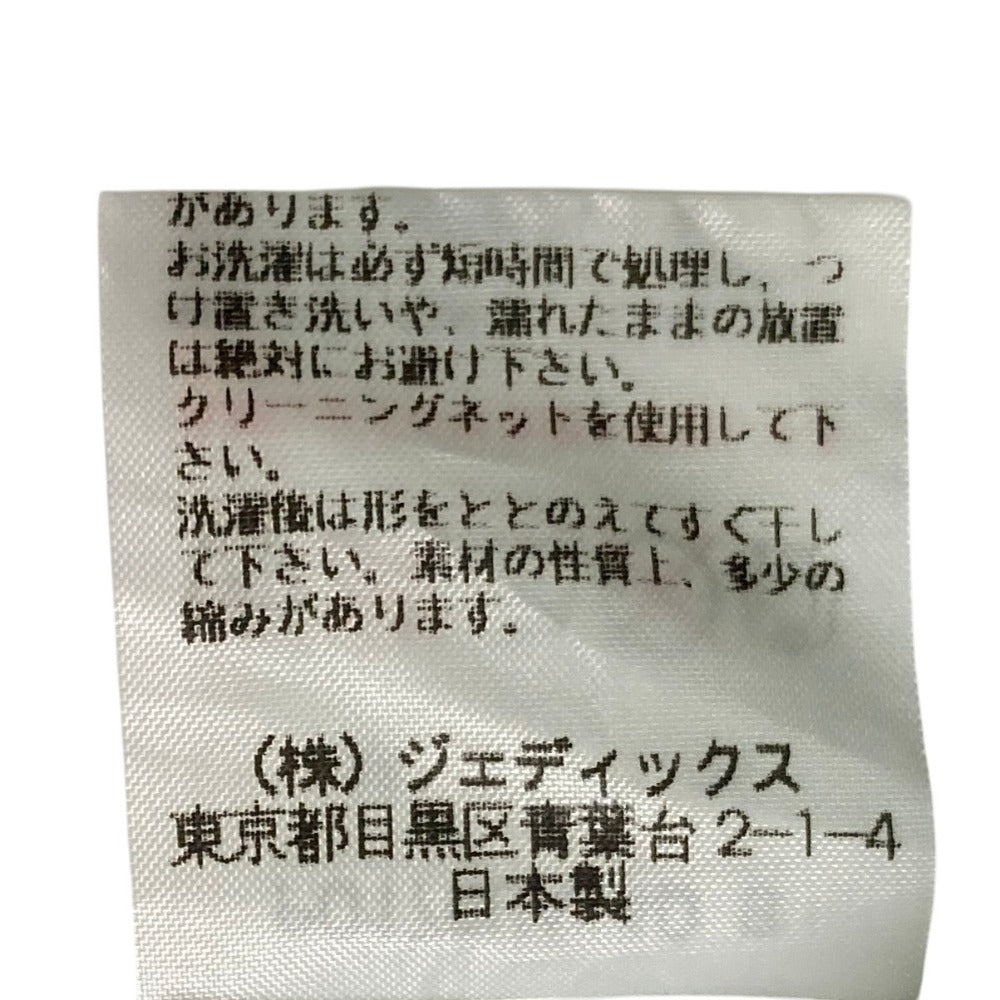 があります。
お洗濯は必ず短時間で処理し、つ
け置き洗いや、濡れたままの放置
は絶対にお避け下さい。
クリーニングネットを使用して下
さい。
洗濯後は形をととのえてすぐ干し
て下さい。素材の性質上、多少の
縮みがあります。
(株)ジェディックス
東京都目黒区青葉台2-1-4
日本製